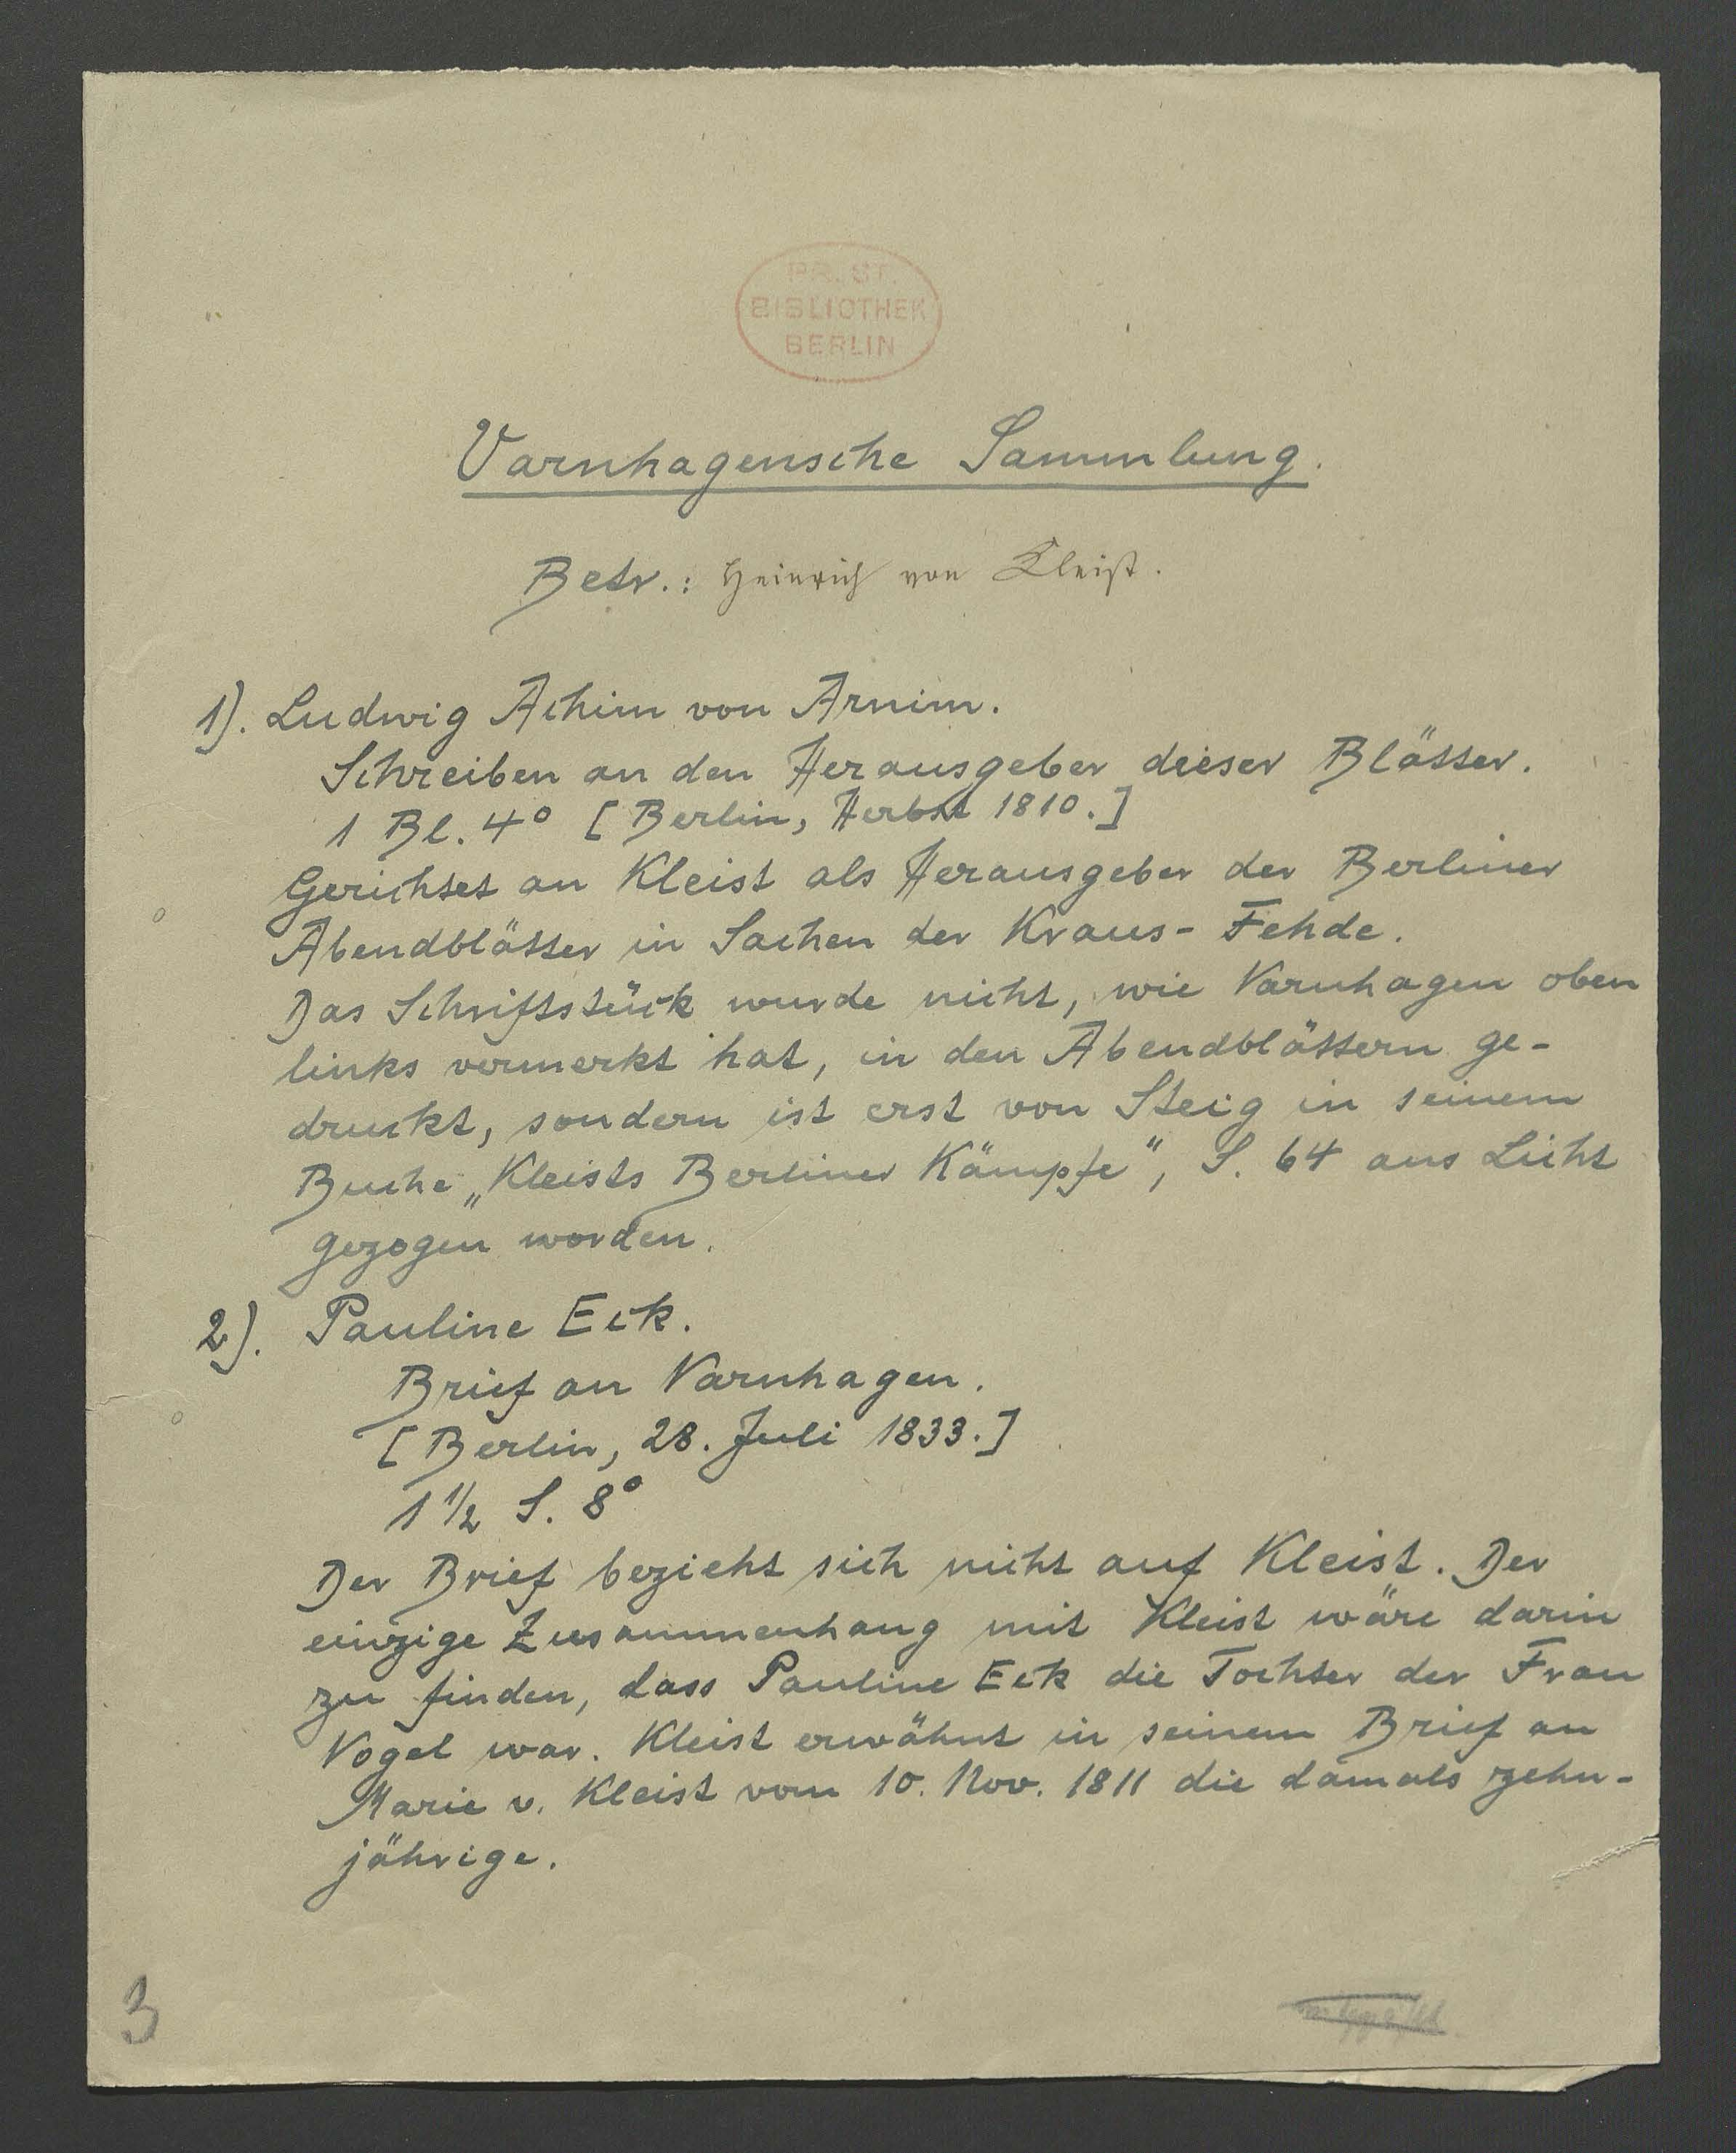 PR. ST.
BIBLIOTHEK
BERLIN
Varnhagensche Sammlung.
Betr.: Heinrich von Kleist.
1). Ludwig Achim von Arnim.
Schreiben an den Herausgeber dieser Blätter.
1 Bl. 4° [Berlin, Herbst 1810.]
Gerichtet an Kleist als Herausgeber der Berliner
Abendblätter in Sachen der Kraus-Fehde.
Das Schriftstück wurde nicht, wie Varnhagen oben
links vermerkt hat, in den Abendblättern ge-
druckt, sondern ist erst von Steig in seinem
Buche „Kleists Berliner Kämpfe", S. 64 ans Licht
gezogen worden.
2). Pauline Eck.
Brief an Varnhagen.
[Berlin, 28. Juli 1833.]
1 1/2 S. 8°
Der Brief bezieht sich nicht auf Kleist. Der
einzige Zusammenhang mit Kleist wäre darin
zu finden, dass Pauline Eck die Tochter der Frau
Vogel war. Kleist erwähnt in seinem Brief an
Marie v. Kleist vom 10. Nov. 1811 die damals zehn-
jährige.
3